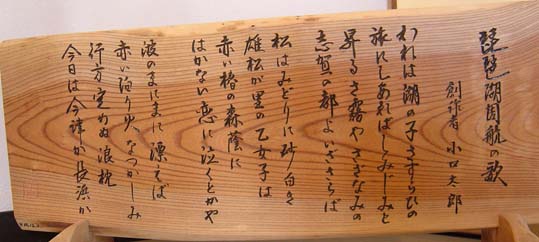 琵琶湖周航の歌
創作者 小口太郎
われは湖の子さすらひの
旅にしあればしみじみと
昇るさ霧やさざなみの
志賀の都よいざさらば
松はみどりに砂白き
雄松が里の乙女子は
赤い椿の森蔭に
はかない恋に泣くとかや
波のまにまに漂えば
赤い泊り火なつかしみ
行方定めぬ浪枕
今日は今津か長浜か